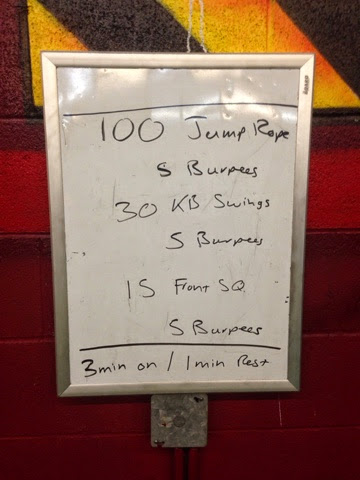 100 Jump Rope
5 Burpees
30 KB Swings
5 Burpees
15 Front SQ
5 Burpees
3min on / 1min Rest